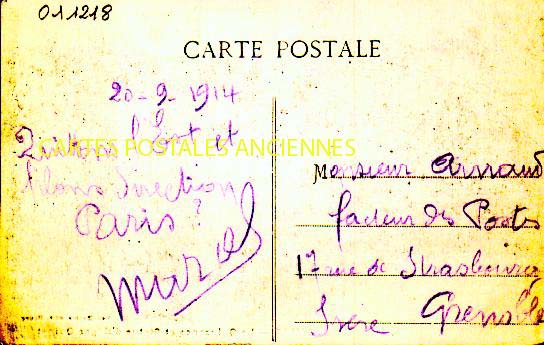 011218
CARTE POSTALE
20-9-1914
Quittons l'Est et
filons direction
Paris ?
Marcel
CARTES POSTALES ANCIENNES
Monsieur Arnaud
facteur des Postes
17 rue de Strasbourg
Grenoble
Isère